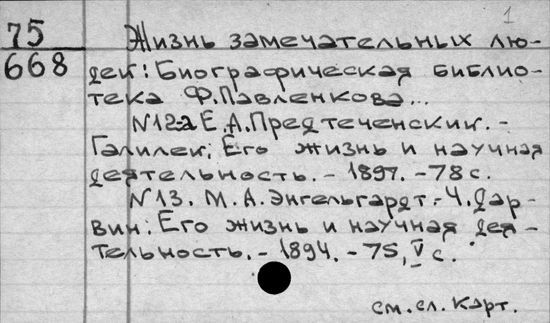 1
75
668
Жизнь замечательных лю-
дей: Биографическая библио-
тека Ф. Павленкова...
N12-а Е. А. Предтеченский. -
Галилей: Его жизнь и научная
деятельность. - 1897. - 78 с.
N13. М. А. Энгельгардт. - Ч. Дар-
вин: Его жизнь и научная дея-
тельность. - 1894. - 75, V с.
см. сл. карт.